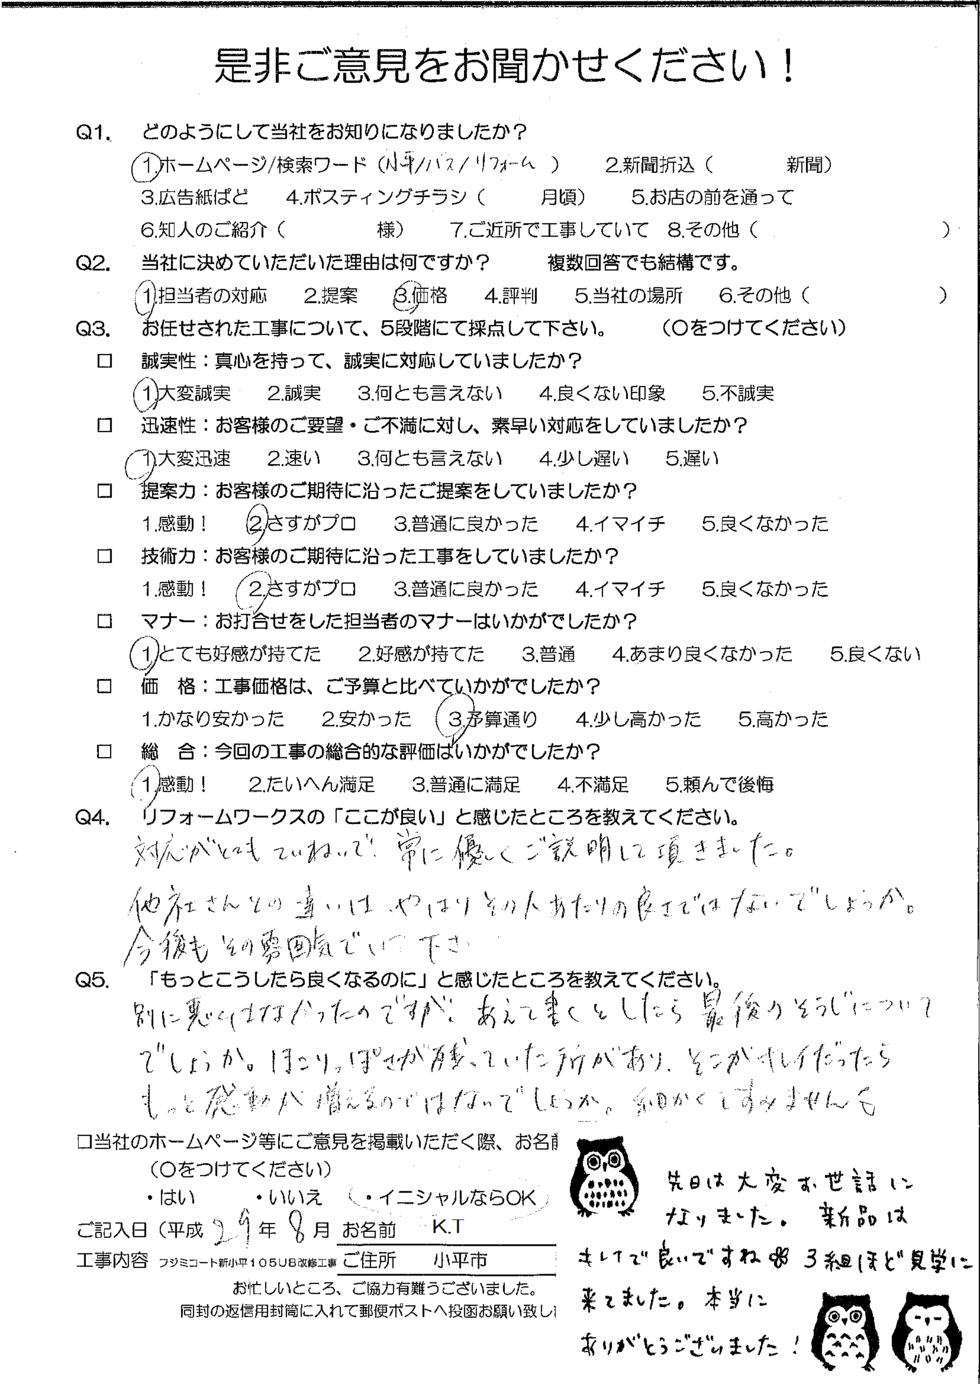 是非ご意見をお聞かせください！
Q1. どのようにして当社をお知りになりましたか？
1.ホームページ/検索ワード（小平/バス/リフォーム ） 2.新聞折込（ 新聞）
3.広告紙ぱど 4.ポスティングチラシ（ 月頃） 5.お店の前を通って
6.知人のご紹介（ 様） 7.ご近所で工事していて 8.その他（ ）
Q2. 当社に決めていただいた理由は何ですか？ 複数回答でも結構です。
1.担当者の対応 2.提案 3.価格 4.評判 5.当社の場所 6.その他（ ）
Q3. お任せされた工事について、5段階にて採点して下さい。 （○をつけてください）
□ 誠実性：真心を持って、誠実に対応していましたか？
1.大変誠実 2.誠実 3.何とも言えない 4.良くない印象 5.不誠実
□ 迅速性：お客様のご要望・ご不満に対し、素早い対応をしていましたか？
1.大変迅速 2.速い 3.何とも言えない 4.少し遅い 5.遅い
□ 提案力：お客様のご期待に沿ったご提案をしていましたか？
1.感動！ 2.さすがプロ 3.普通に良かった 4.イマイチ 5.良くなかった
□ 技術力：お客様のご期待に沿った工事をしていましたか？
1.感動！ 2.さすがプロ 3.普通に良かった 4.イマイチ 5.良くなかった
□ マナー：お打合せをした担当者のマナーはいかがでしたか？
1.とても好感が持てた 2.好感が持てた 3.普通 4.あまり良くなかった 5.良くない
□ 価 格：工事価格は、ご予算と比べていかがでしたか？
1.かなり安かった 2.安かった 3.予算通り 4.少し高かった 5.高かった
□ 総 合：今回の工事の総合的な評価はいかがでしたか？
1.感動！ 2.たいへん満足 3.普通に満足 4.不満足 5.頼んで後悔
Q4. リフォームワークスの「ここが良い」と感じたところを教えてください。
対応がとてもていねいで、常に優しくご説明して頂きました。
他社さんとの違いは、やはりその人あたりの良さではないでしょうか。
今後もその雰囲気でいて下さ
Q5. 「もっとこうしたら良くなるのに」と感じたところを教えてください。
別に悪くはなかったのですが、あえて書くとしたら最後のそうじについて
でしょうか。ほこりっぽさが残っていた所があり、そこがキレイだったら
もっと感動が増えるのではないでしょうか。細かくてすみません
□当社のホームページ等にご意見を掲載いただく際、お名前
（○をつけてください）
・はい ・いいえ ・イニシャルならOK
ご記入日（平成 29年 8月 お名前 K.T
工事内容 フジミコート新小平105UB改修工事 ご住所 小平市
お忙しいところ、ご協力有難うございました。
同封の返信用封筒に入れて郵便ポストへ投函お願い致し
先日は大変お世話に
なりました。 新品は
キレイで良いですね 3組ほど見学に
来てました。本当に
ありがとうございました！